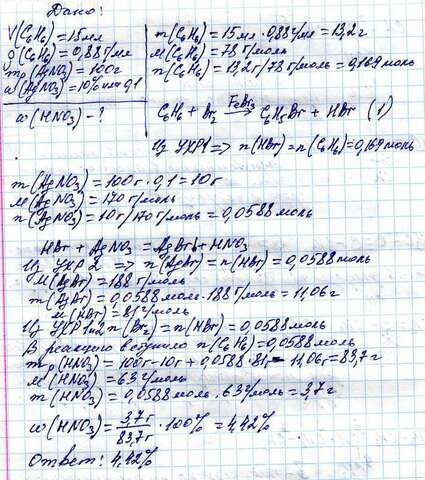 Дано:
V(C6H6)=15мл
ρ(C6H6)=0,88г/мл
mр(AgNO3)=100г
w(AgNO3)=10% или 0,1
w(HNO3)-?
m(C6H6)=15мл·0,88г/мл=13,2г
M(C6H6)=78г/моль
n(C6H6)=13,2г/78г/моль=0,169моль
C6H6+Br2 FeBr3→ C6H5Br+HBr (1)
Из УХР1=>n(HBr)=n(C6H6)=0,169моль
m(AgNO3)=100г·0,1=10г
M(AgNO3)=170г/моль
n(AgNO3)=10г/170г/моль=0,0588моль
HBr+AgNO3=AgBr↓+HNO3
Из УХР 2 => n(AgBr)=n(HBr)=0,0588моль
M(AgBr)=188г/моль
m(AgBr)=0,0588моль·188г/моль=11,06г
M(HBr)=81г/моль
Из УХР1и2 n(Br2)=n(HBr)=0,0588моль
В реакцию вступило n(C6H6)=0,0588моль
mр(HNO3)=100г-10г+0,0588·81г-11,06г=83,7г
M(HNO3)=63г/моль
m(HNO3)=0,0588моль·63г/моль=3,7г
w(HNO3)=3,7г/83,7г·100%=4,42%
Ответ: 4,42%